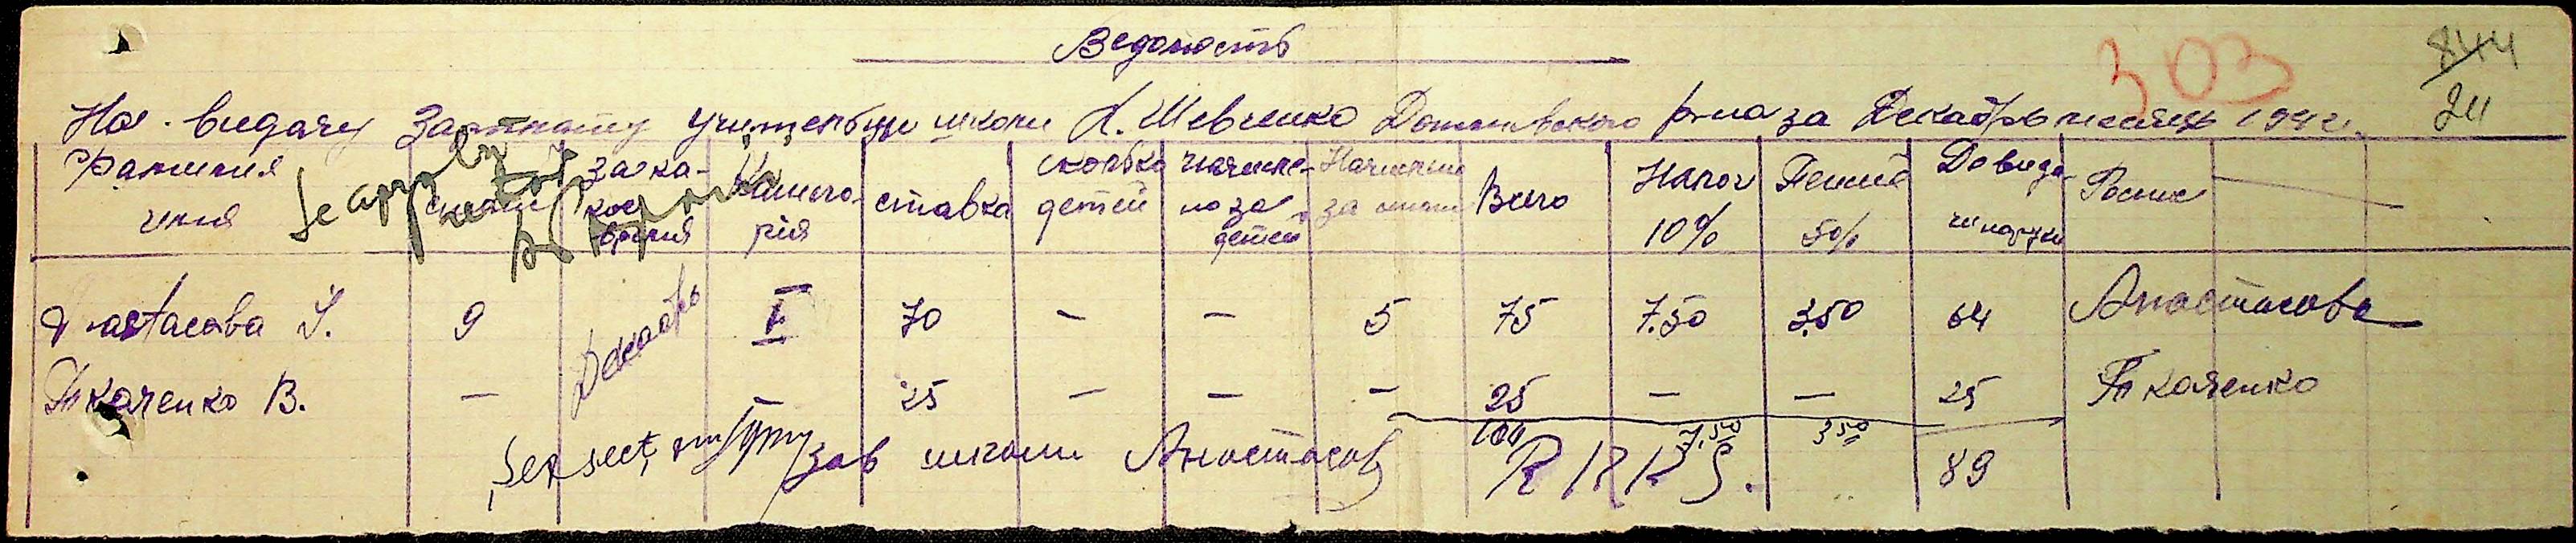 Ведомость
303
844
211
На видачу Зарплати учительци школи Х. Шевченко Доманевского р-на за Декабрь месяць 1942 г.
Фамилия имя стаж за какое время Категория ставка сколько детей начислено за детей Начислено за стаж Всего Налог 10% Пенсия 5% До видачи на руки Роспис
Se aprobă
Анастасова І. 9 Декабрь II 70 – – 5 75 7.50 3.50 64 Анастасова
Ткаченко В. – – 25 – – – 25 – – 25 Ткаченко
100 7,50 3 50 89
Șef sect. зав школи Анастасов